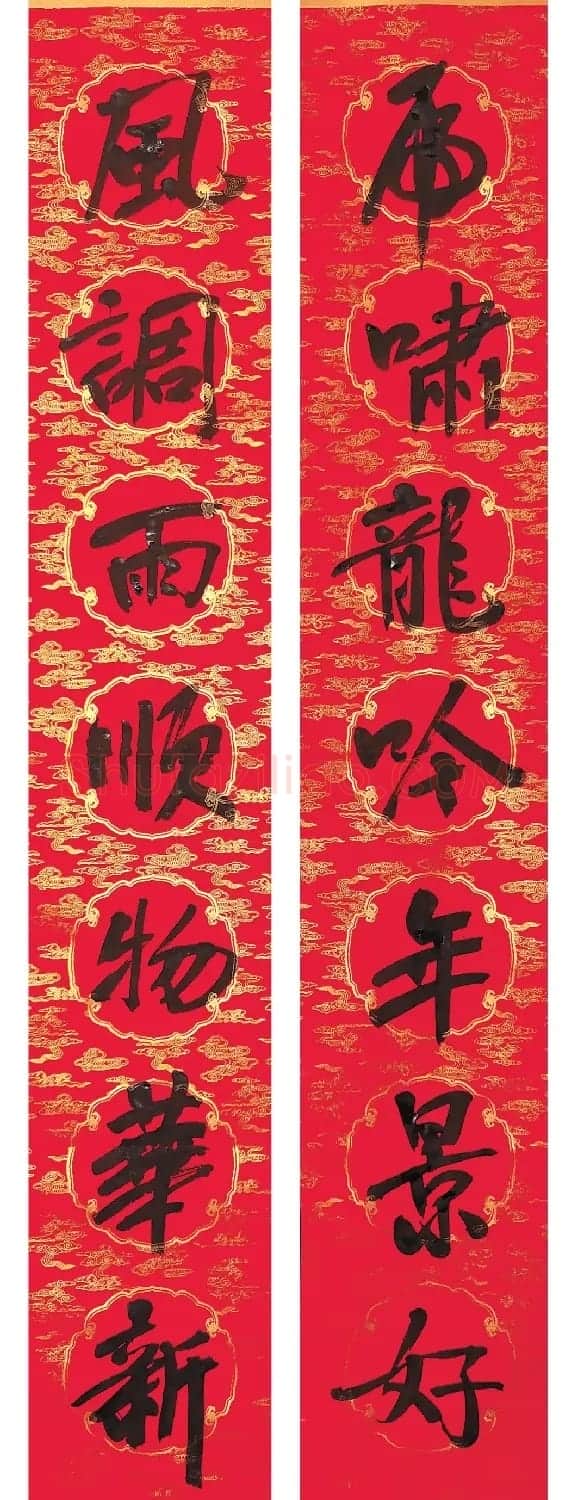 虎啸龍吟年景好
風調雨顺物華新